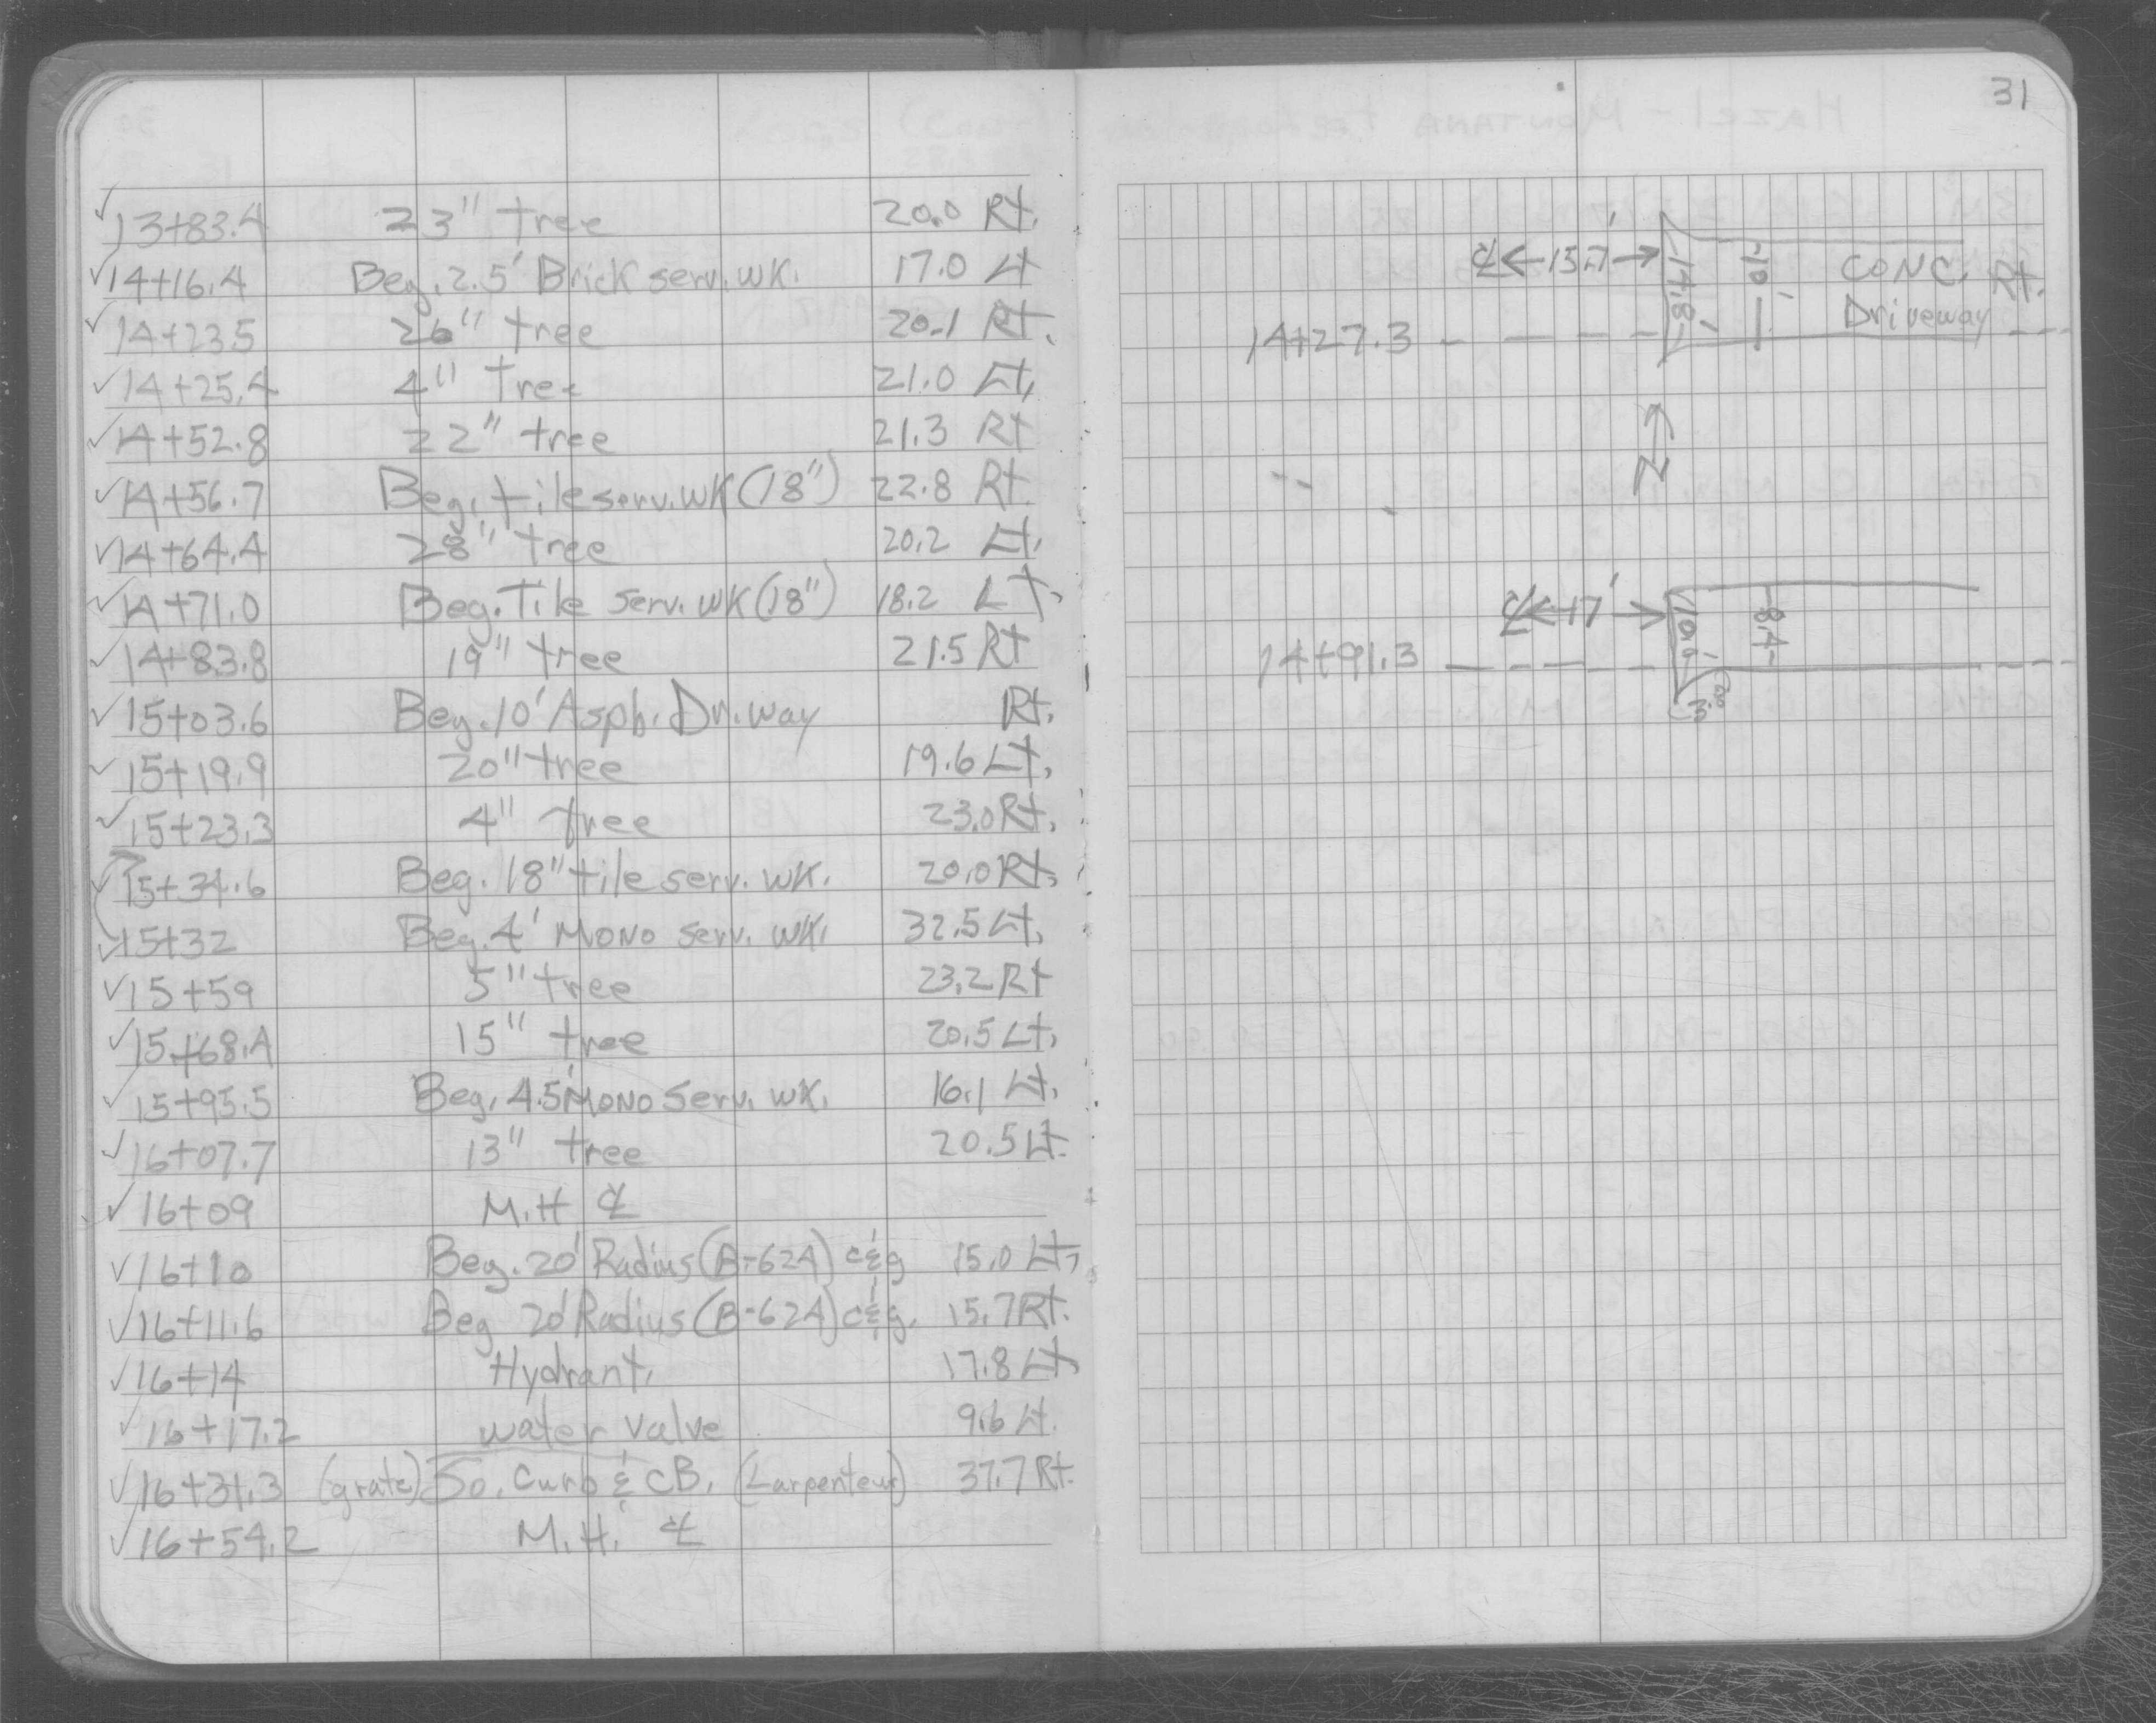 31
✓ 13+83.4 23" tree 20.0 Rt.
✓ 14+16.4 Beg. 2.5' Brick serv. wk. 17.0 Lt
✓ 14+23.5 26" tree 20.1 Rt.
✓ 14+25.4 4" tree 21.0 Lt.
✓ 14+52.8 22" tree 21.3 Rt
✓ 14+56.7 Beg. tile serv. wk (18") 22.8 Rt.
✓ 14+64.4 28" tree 20.2 Lt.
✓ 14+71.0 Beg. Tile serv. wk (18") 18.2 Lt.
✓ 14+83.8 19" tree 21.5 Rt
✓ 15+03.6 Beg. 10' Asph. Dr. way Rt.
✓ 15+19.9 20" tree 19.6 Lt.
✓ 15+23.3 4" tree 23.0 Rt.
✓ 15+34.6 Beg. 18" tile serv. wk. 20.0 Rt.
✓ 15+32 Beg. 4' Mono serv. wk. 32.5 Lt.
✓ 15+59 5" tree 23.2 Rt
✓ 15+68.4 15" tree 20.5 Lt.
✓ 15+95.5 Beg. 4.5' Mono Serv. wk. 16.1 Lt.
✓ 16+07.7 13" tree 20.5 Lt.
✓ 16+09 M.H ℄
✓ 16+10 Beg. 20' Radius (B-624) c&g 15.0 Lt.
✓ 16+11.6 Beg 20' Radius (B-624) c&g. 15.7 Rt.
✓ 16+14 Hydrant. 17.8 Lt.
✓ 16+17.2 water valve 9.6 Lt.
✓ 16+31.3 (grate) So. Curb & CB. (Larpenteur) 37.7 Rt.
✓ 16+54.2 M.H. ℄
℄ ← 15.7' → 14.8' 10' CONC. Rt.
Driveway
14+27.3
N
℄ ← 17' → 10.6' 8.4
14+91.3
3.0